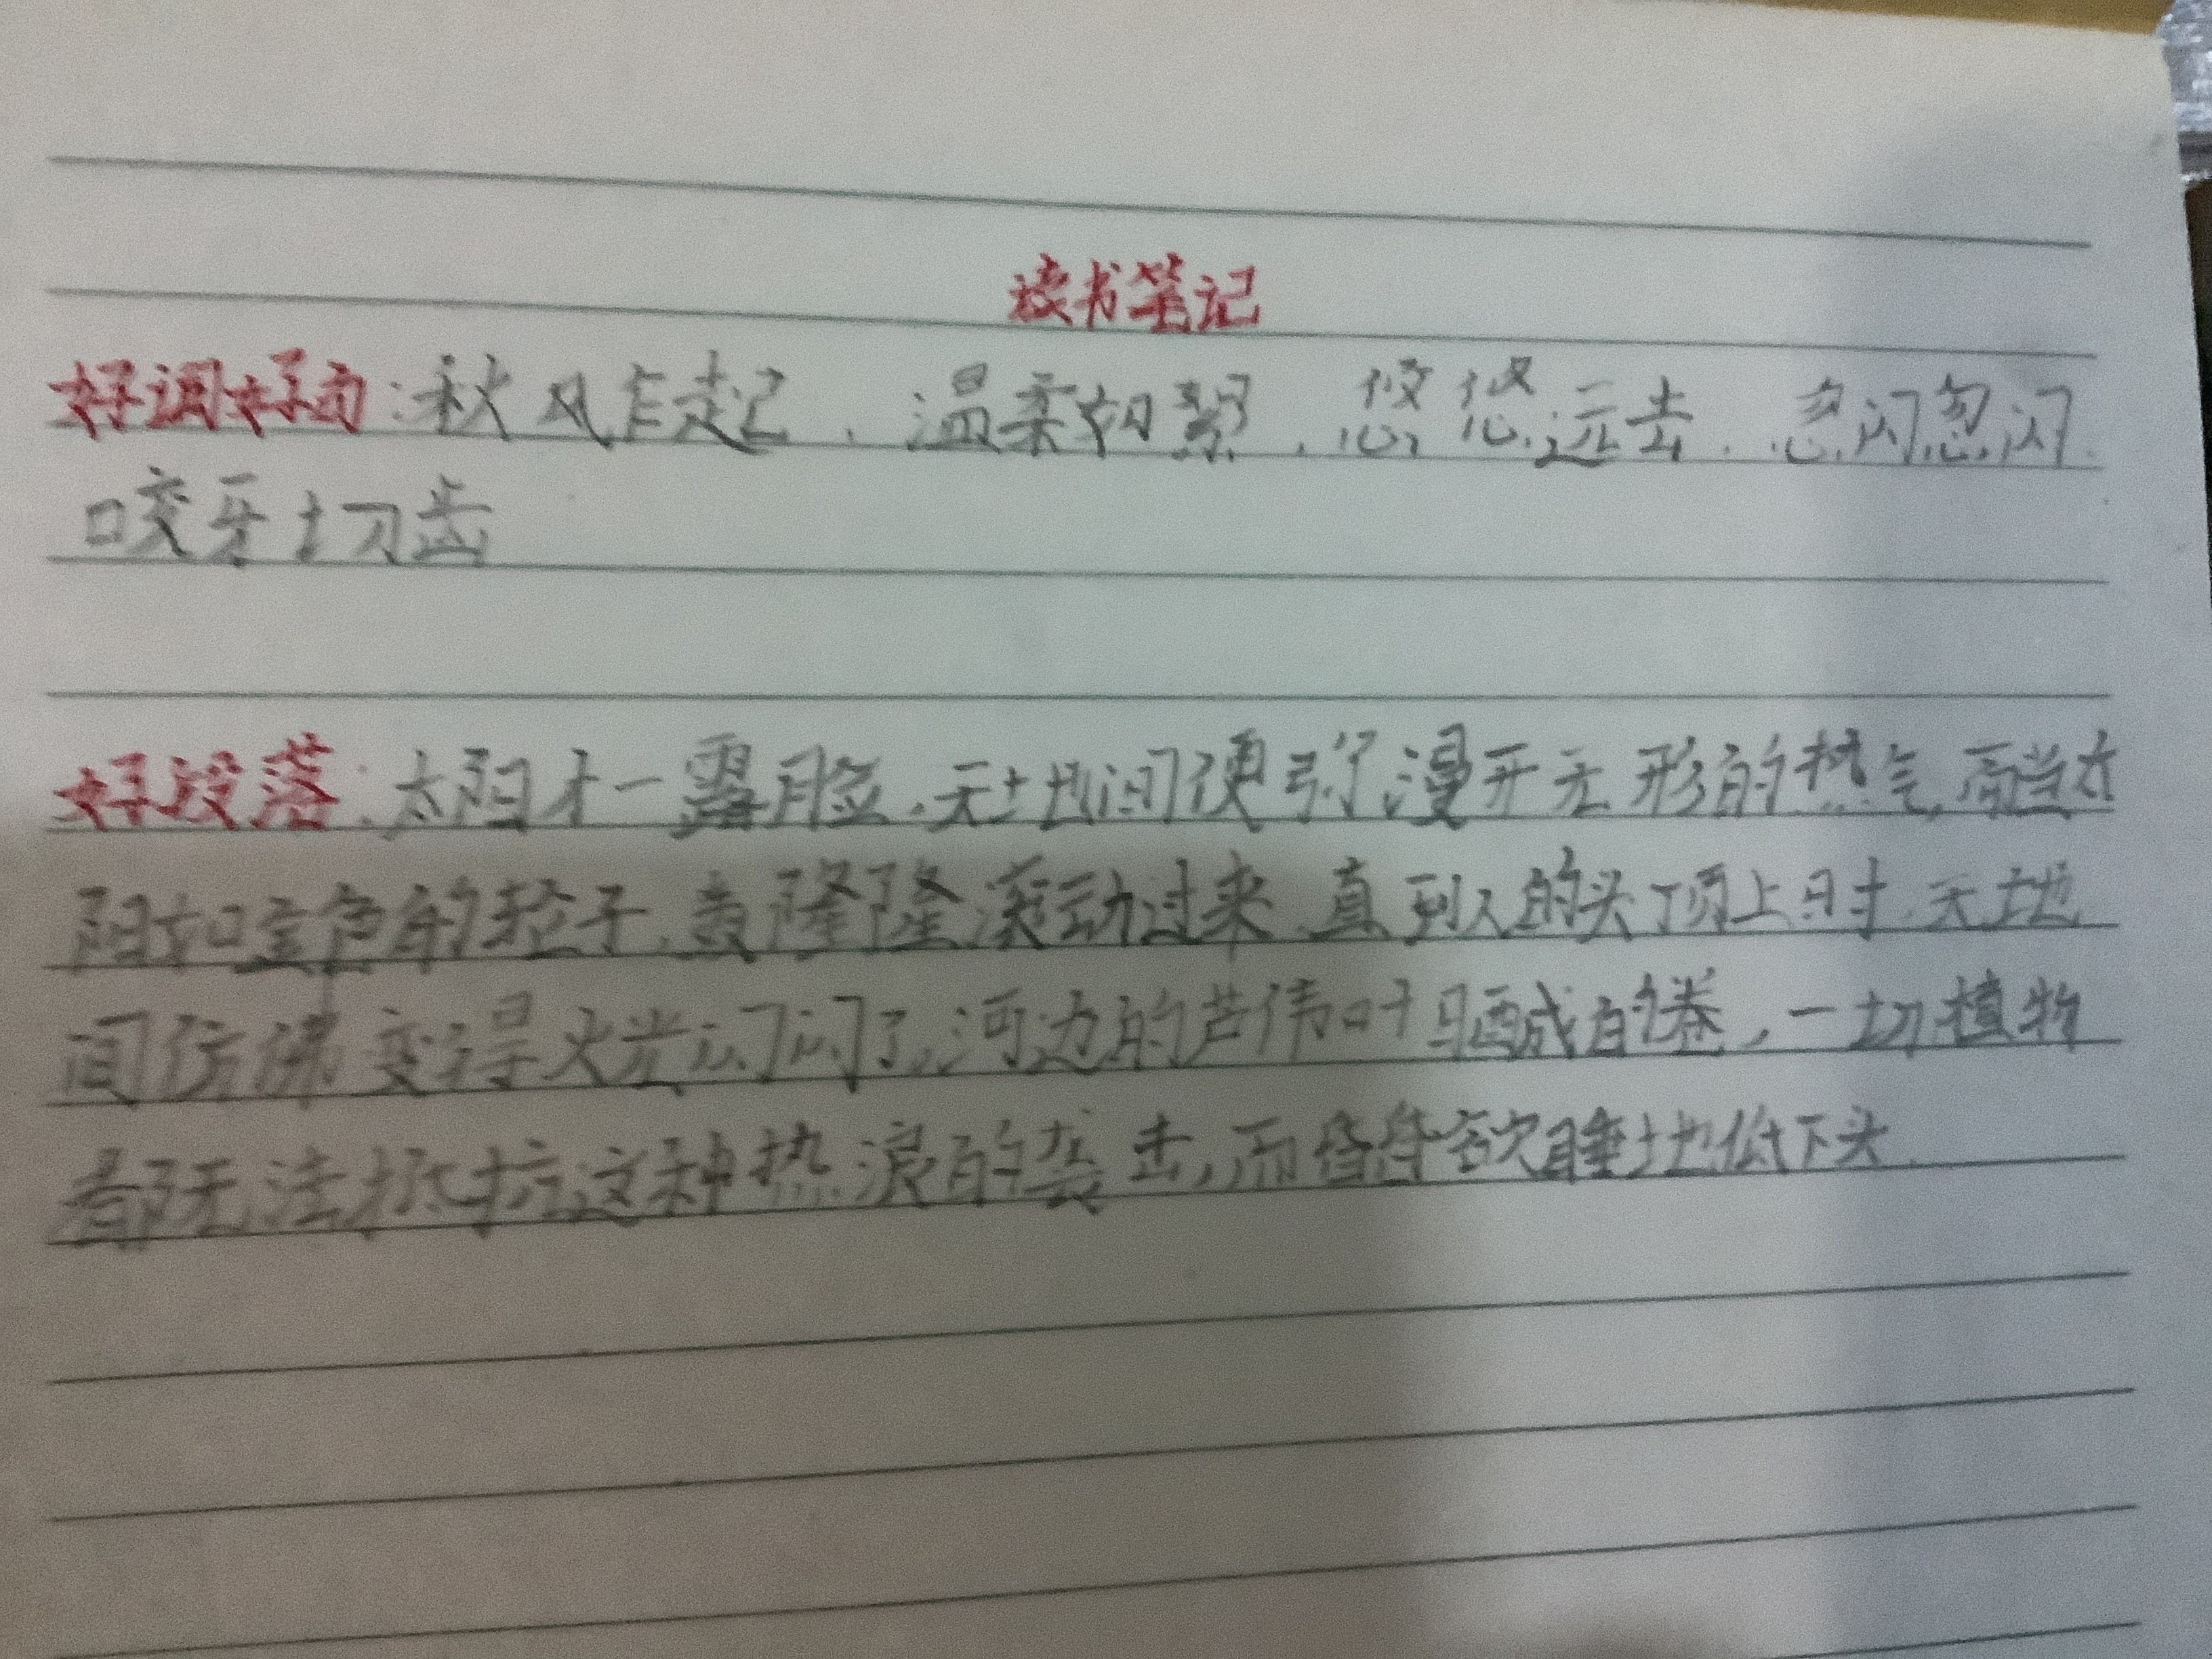 读书笔记
好词好句:秋风乍起、温柔如絮、悠悠远去、忽闪忽闪、
咬牙切齿
好段落:太阳才一露脸,天地间便弥漫开无形的热气,而当太
阳如金色的轮子,轰隆隆滚动过来,直到人的头顶上时,天地
间仿佛变得火光闪闪了,河边的芦苇叶晒成的卷,一切植物
都无法抵抗这种热浪的袭击,而昏昏欲睡地低下头.